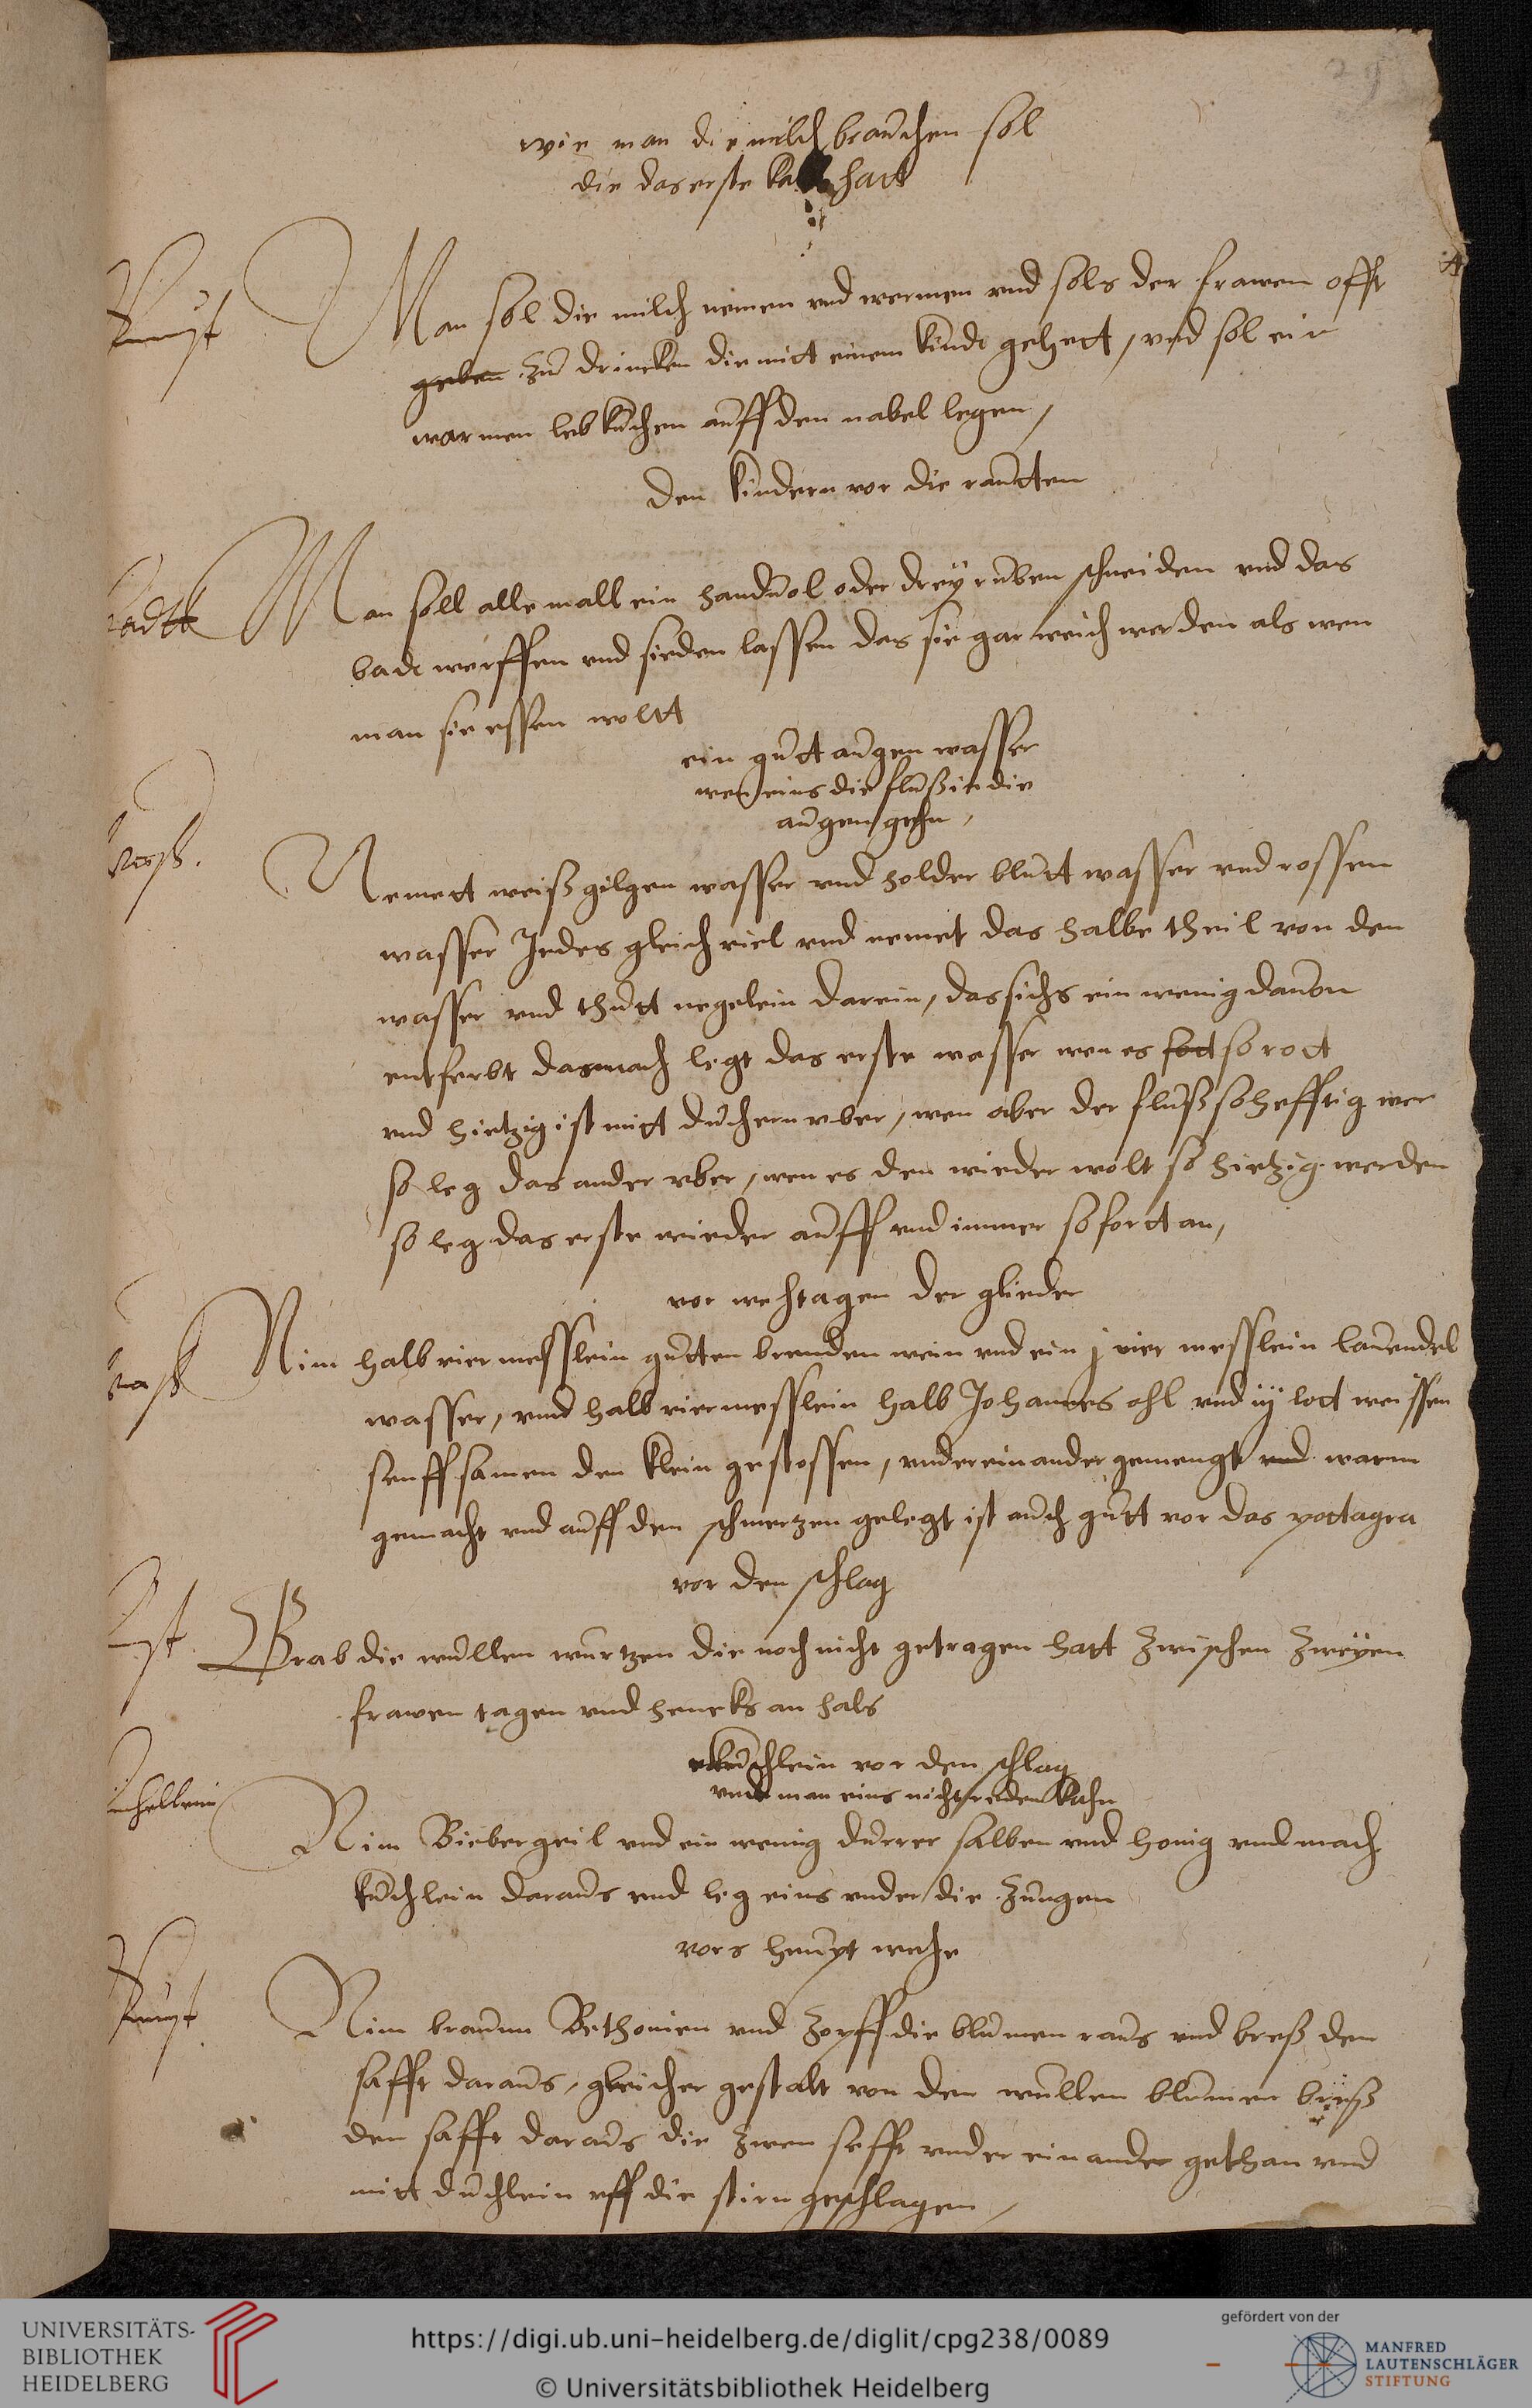 29
wie man die milch brauchen sol
die das erste kalb hatt
Kunst
Man sol die milch nemen vnd wermen vnd sols der frawen offt
geben zu drincken die mitt einem kindt gehett, vnd sol ein
warmen lebkuchen auff den nabel legen,
den kindern vor die rautten
badtt
Man soll alle mall ein handuol oder dreÿ ruben schneiden vnd das
badt werffen vnd sieden lassen das sie gar weich werden als wen
man sie essen woltt
ein gutt augen wasser
wen eins die fluß in die
augen gehn,
Nemett weiß gilgen wasser vnd holder blutt wasser vnd rossen
wasser Jedes gleich viel vnd nemet das halbe theil von den
wasser vnd thutt negelein darein, das sichs ein wenig dauon
entferbt darnach legt das erste wasser wen es so rott
vnd hietzig ist mitt duchern vber, wen aber der fluß so hefftig wer
so leg das ander vber, wen es den wieder wolt so hietzig werden
so leg das erste wieder auff vnd immer so fortt an,
vor wehtagen der glieder
Nim halb vier messlein gutten brenden wein vnd ein j vier messlein lauendel
wasser, vnd halb vier messlein halb Johannes ohl vnd iij lott weissen
senff samen den klein gestossen, vnder einander gemengt vnd warm
gemacht vnd auff den schmertzen gelegt ist auch gutt vor das pottagra
vor den schlag
Grab die wullen wurtzen die noch nicht getragen hatt zwischen zweÿen
frawen tagen vnd hencks an hals
kuchlein vor den schlag
vnd man eins nicht reden kahn
Nim Biebergeil vnd ein wenig durrer salben vnd honig vnd mach
kuchlein daraus vnd leg eins vnder die zungen
vors heupt wehe
Kunst
Nim braunn Bethonien vnd zopff die blumen raus vnd breß den
safft daraus, gleicher gestalt von den wullen blumen breß
den safft daraus die zwen sefft vnder ein ander gethan vnd
mitt duchlein vff die stirn geschlagen,
UNIVERSITÄTS-
BIBLIOTHEK
HEIDELBERG
https://digi.ub.uni-heidelberg.de/diglit/cpg238/0089
© Universitätsbibliothek Heidelberg
gefördert von der
MANFRED
LAUTENSCHLÄGER
STIFTUNG